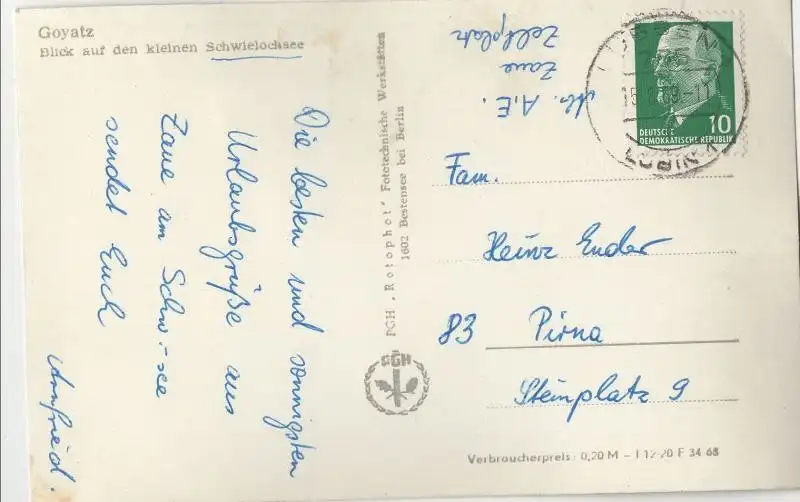 Goyatz
Blick auf den kleinen Schwielochsee
Die besten und sonnigsten
Urlaubsgrüße aus
Zaue am Schw.-see
sendet Euch
Arnfried.
PGH „Rotophot" Fototechnische Werkstätten
1602 Bestensee bei Berlin
PGH
Abs. A.E.
Zaue
Zeltplatz
LÜBBEN
LUBIN
DEUTSCHE
DEMOKRATISCHE REPUBLIK
10
Fam.
Heinz Ender
83 Pirna
Steinplatz 9
Verbraucherpreis: 0,20 M – I 12-20 F 34-68